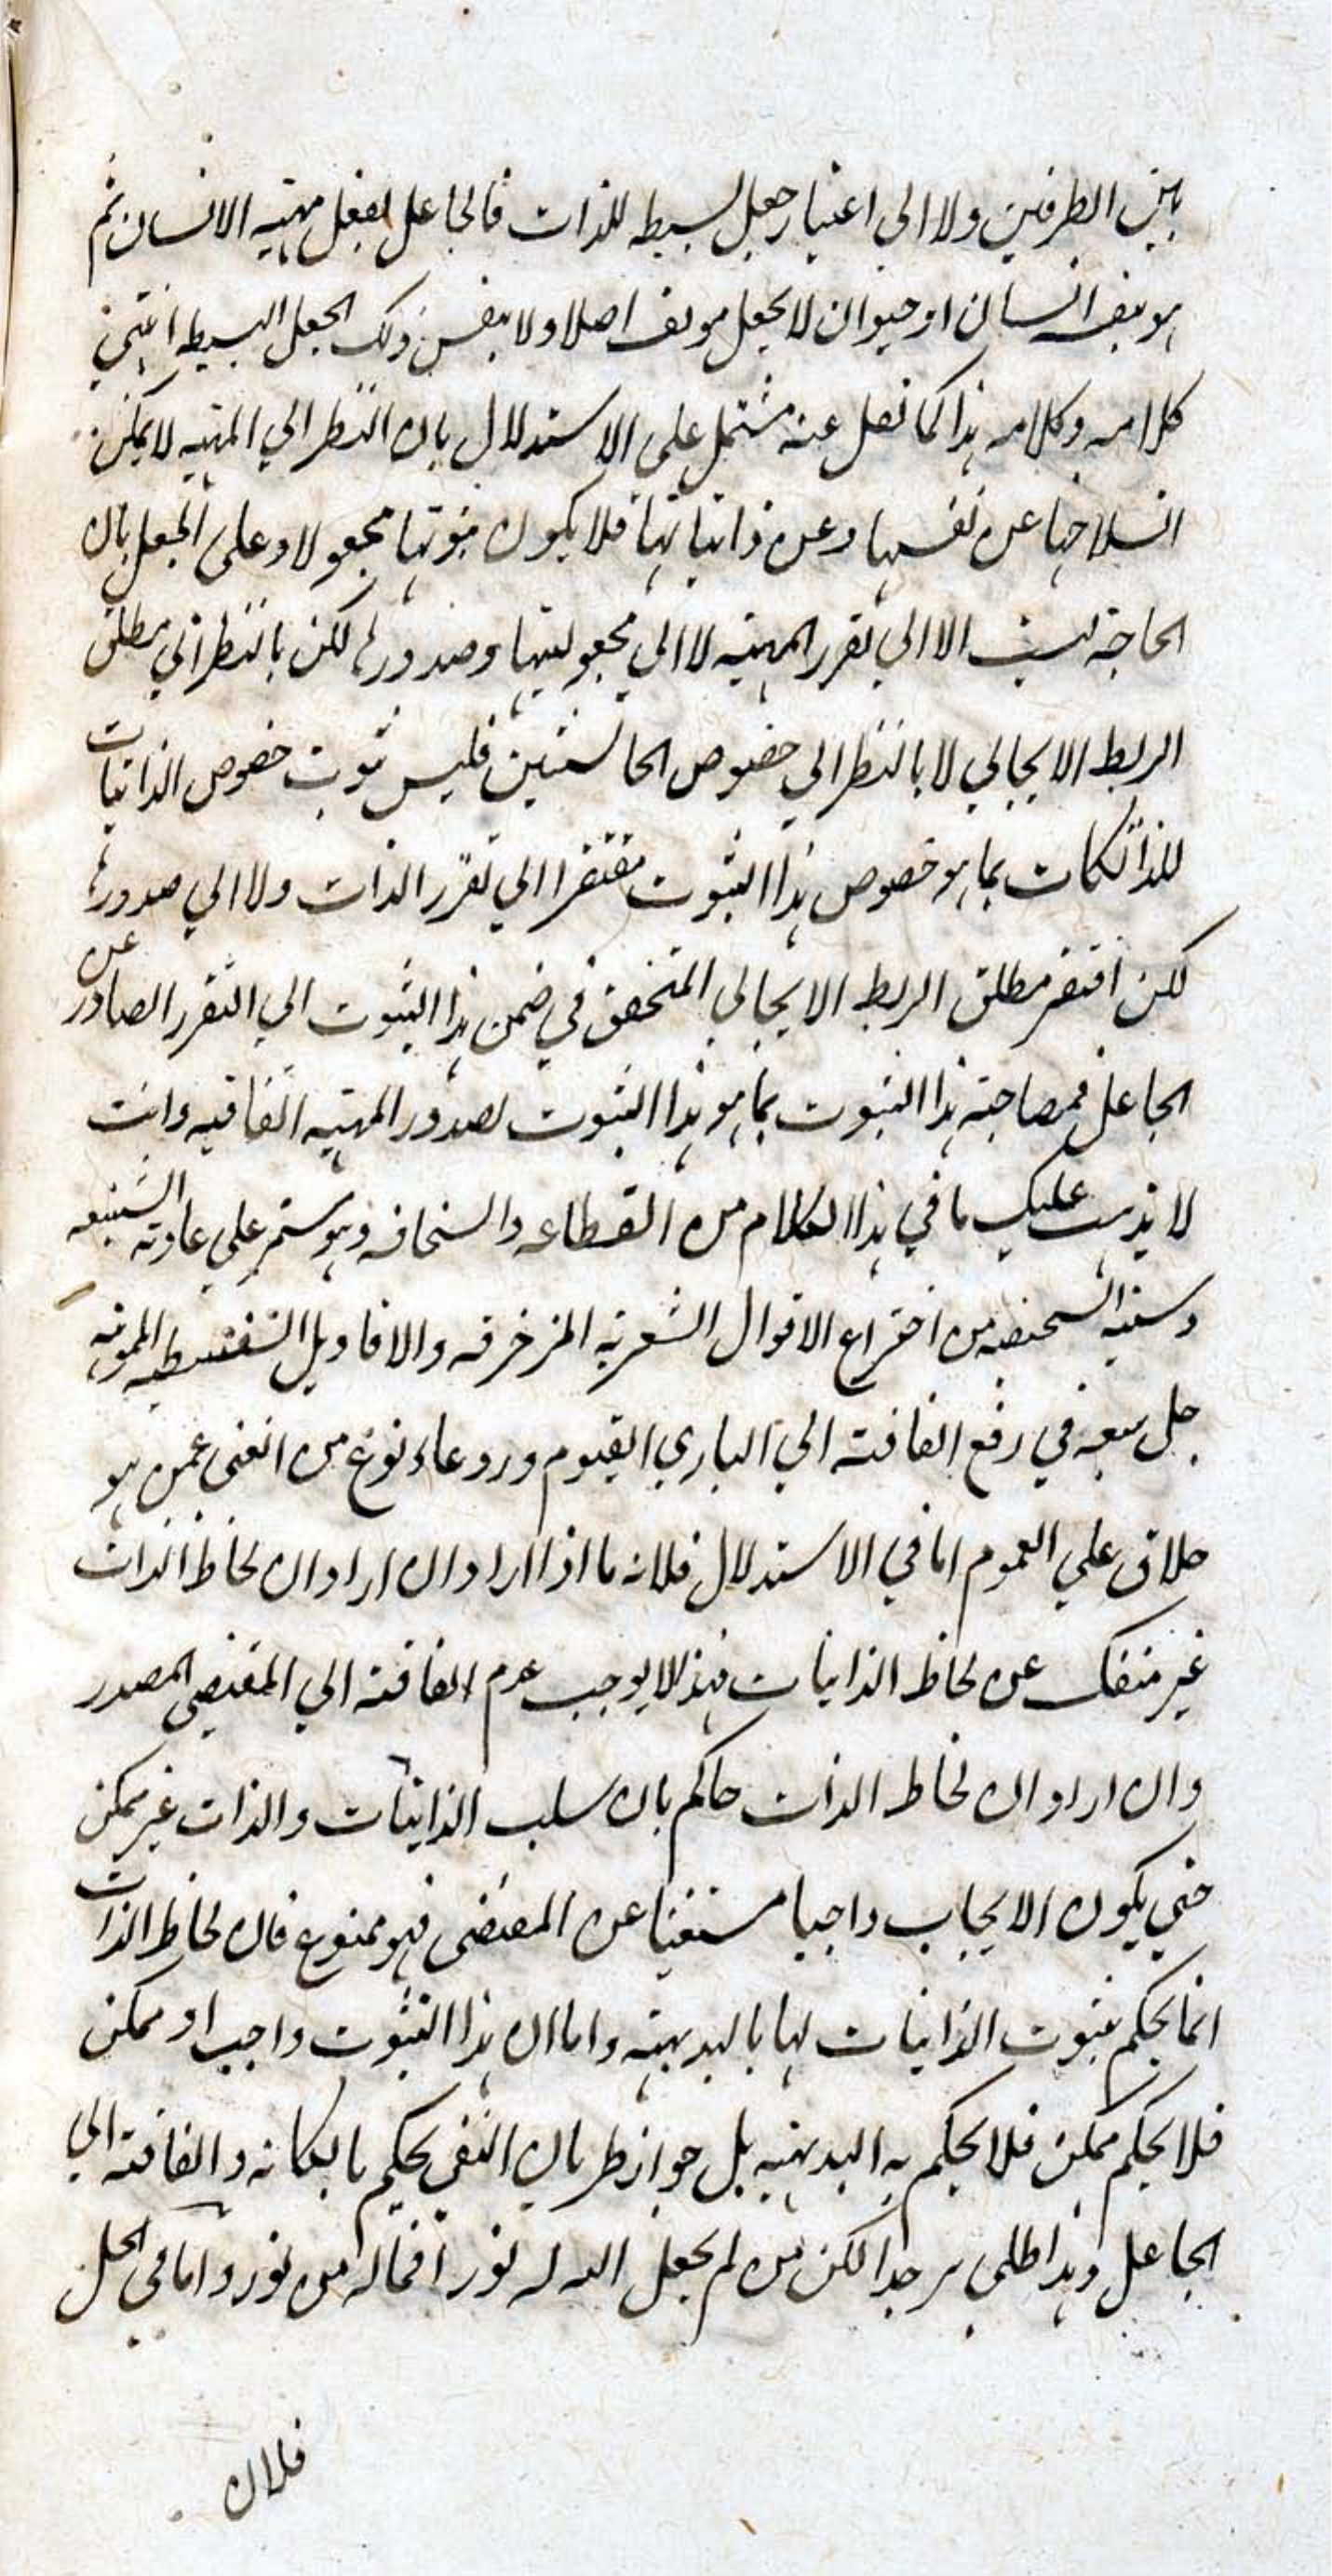 بين الطرفين ولا الى اعتبار جعل بسيط للذات فالجاعل يفعل مهية الانسان ثم
هو بنفسه انسان او حيوان لا بجعل مؤلف اصلا ولا بنفس ذلك الجعل البسيط انتهى
كلامه وكلامه هذا كما نقل عنه مشتمل على الاستدلال بان النظر الي المهية لا يمكن
انسلاخها عن نفسها وعن ذاتياتها فلا يكون ثبوتها مجعولا وعلى الجعل بان
الحاجة ليست الا الي تقرر المهية لا الي مجعوليتها وصدورها لكن بالنظر الي مطلق
الربط الايجابي لا بالنظر الي خصوص الحاشيتين فليس ثبوت خصوص الذاتيات
للذات بما هو خصوص هذا الثبوت مفتقرا الي تقرر الذات ولا الي صدورها
لكن افتقر مطلق الربط الايجابي المتحقق في ضمن هذا الثبوت الي التقرر الصادر عن
الجاعل فمصاحبة هذا الثبوت بما هو هذا الثبوت لصدور المهية اتفاقيه وانت
لا يذهب عليك ما في هذا الكلام من الفظاعه والسخافه وهو مستمر علي عادته الشنيعه
وسنته من اختراع الاقوال الشعريه المزخرفه والاقاويل السفسطيه المموهه
جل سعيه في رفع الفاقة الي الباري القيوم ورو عاء نوع من الغنى عمن هو
خلاق علي العموم اما في الاستدلال فلانه ما اذا اراد ان اراد ان لحاظ الذات
غير منفك عن لحاظ الذاتيات فهذا لا يوجب عدم الفاقة الي المقتضي المصدر
وان اراد ان لحاظ الذات حاكم بان سلب الذاتيات والذات غير ممكن
حتي يكون الايجاب واجبا مستغنيا عن المقتضى فهو ممنوع فان لحاظ الذات
انما يحكم بثبوت الذاتيات لها بالبديهة واما ان هذا الثبوت واجب او ممكن
فلا يحكم ممكن فلا يحكم به البديهة بل جواز طريان النفي يحكم بامكانه والفاقة الي
الجاعل وهذا ظاهر جدا لكن من لم يجعل الله له نورا فماله من نور واما في الحل
فلان